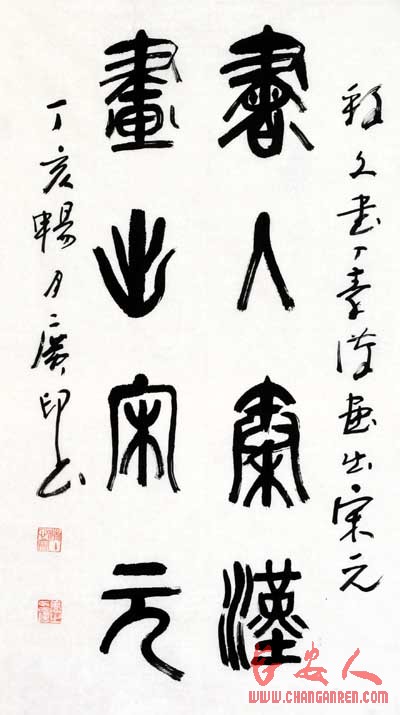 释文书入秦汉画出宋元
書入秦漢
畫出宋元
丁亥暢月廣印书
长安人
WWW.CHANGANREN.COM